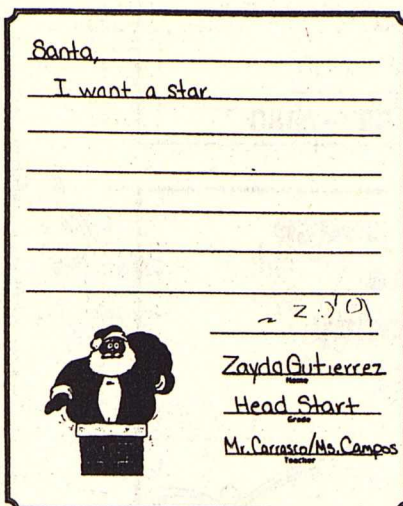 Santa,
I want a star.
Zayda Gutierrez
Name
Head Start
Grade
Mr. Carrasco/Ms. Campos
Teacher